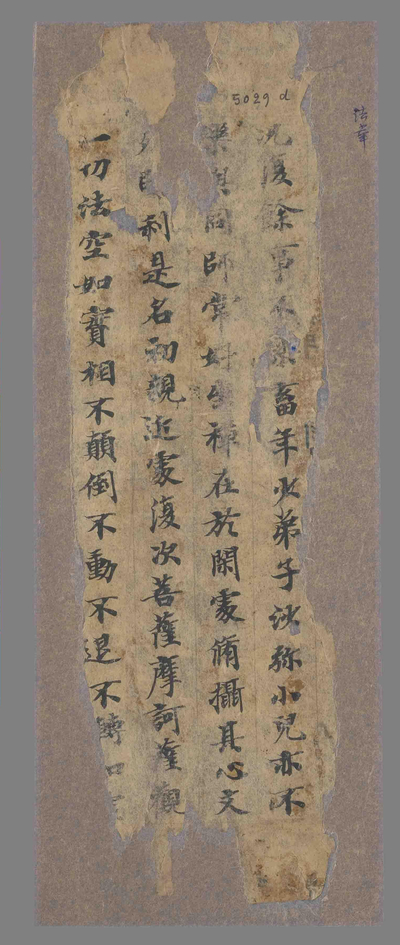 5029 d
法華
況復餘事不樂畜年少弟子沙弥小兒亦不
樂與同師常好坐禪在於閑處脩攝其心文
殊師利是名初親近處復次菩薩摩訶薩觀
一切法空如實相不顛倒不動不退不轉如虛